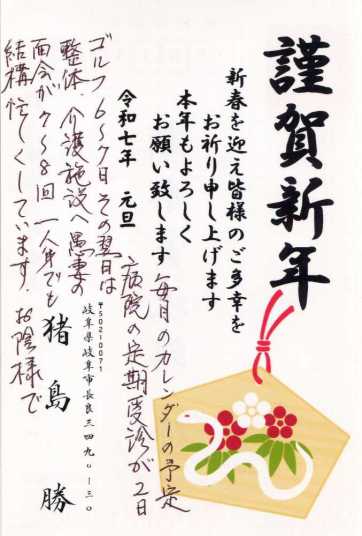 謹賀新年
新春を迎え皆様のご多幸を
お祈り申し上げます
本年もよろしく
お願い致します
令和七年 元旦
毎月のカレンダーの予定
病院の定期受診が2日
ゴルフ6〜7日その翌日は
整体 介護施設へ愚妻の
面会が7〜8回 一人身でも
結構忙しくしています。お陰様で
〒5020071
岐阜県岐阜市長良三四九〇-三〇
猪島 勝